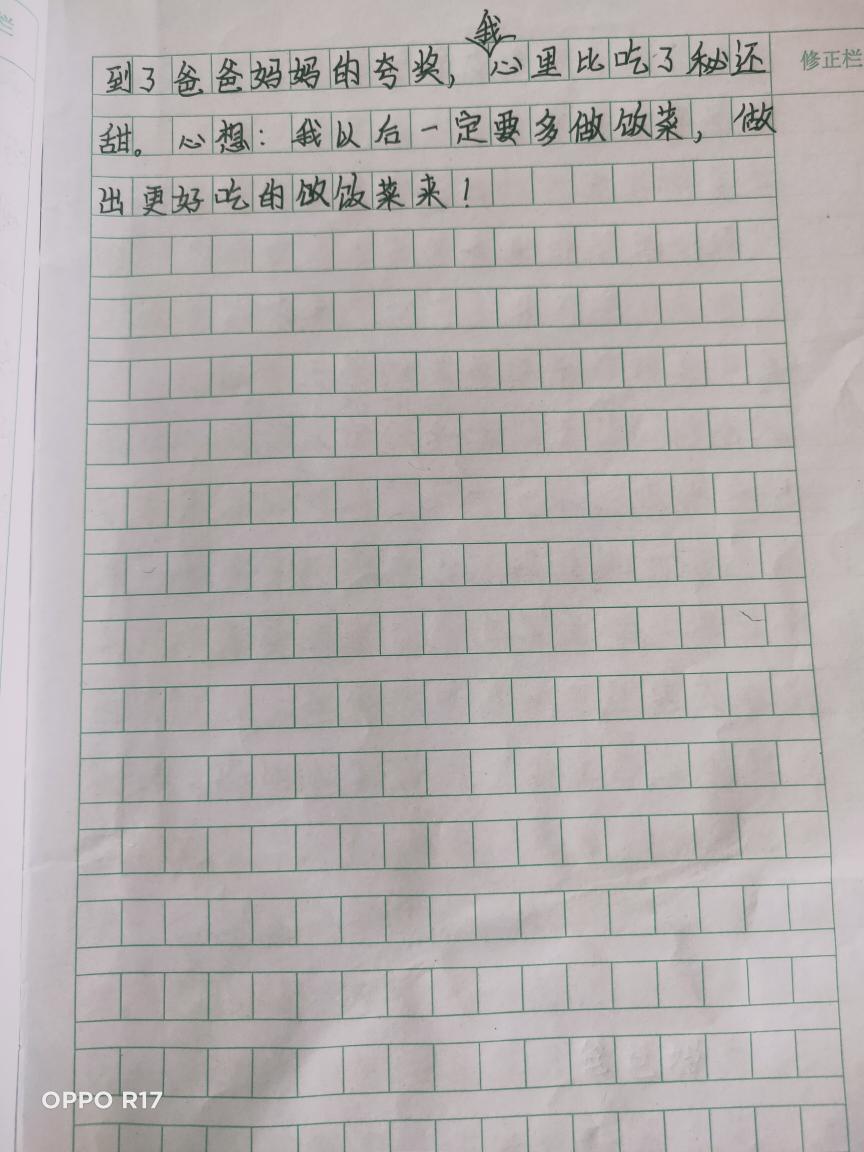 我
到了爸爸妈妈的夸奖，心里比吃了秘还 修正栏
甜。心想：我以后一定要多做饭菜，做
出更好吃的饭饭菜来！
OPPO R17